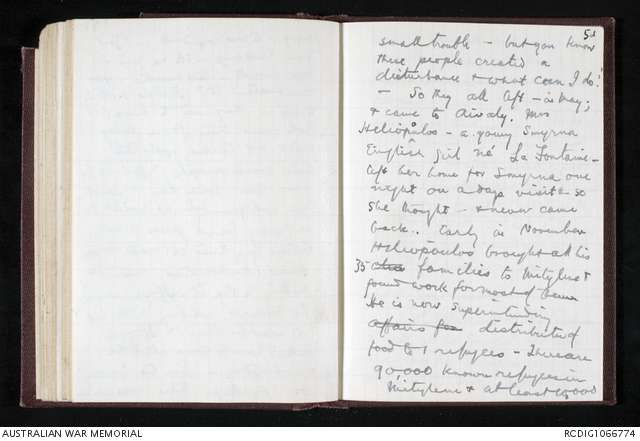 51
small trouble - but you know
these people created a
disturbance & what can I do!
- So they all left - in May;
& came to Aivaly. Mrs
Heliopoulos - a young Smyrna
English girl né La Fontaine -
left her home for Smyrna one
night on a days visit - so
she thought - & never came
back.. Early in November
Heliopoulos brought all his
35 families to Mitylene &
found work for most of
He is now superintending
affairs for distributn of
food to refugees - There are
90,000 known refugees in
Mitylene & at least
AUSTRALIAN WAR MEMORIAL
RCDIG1066774